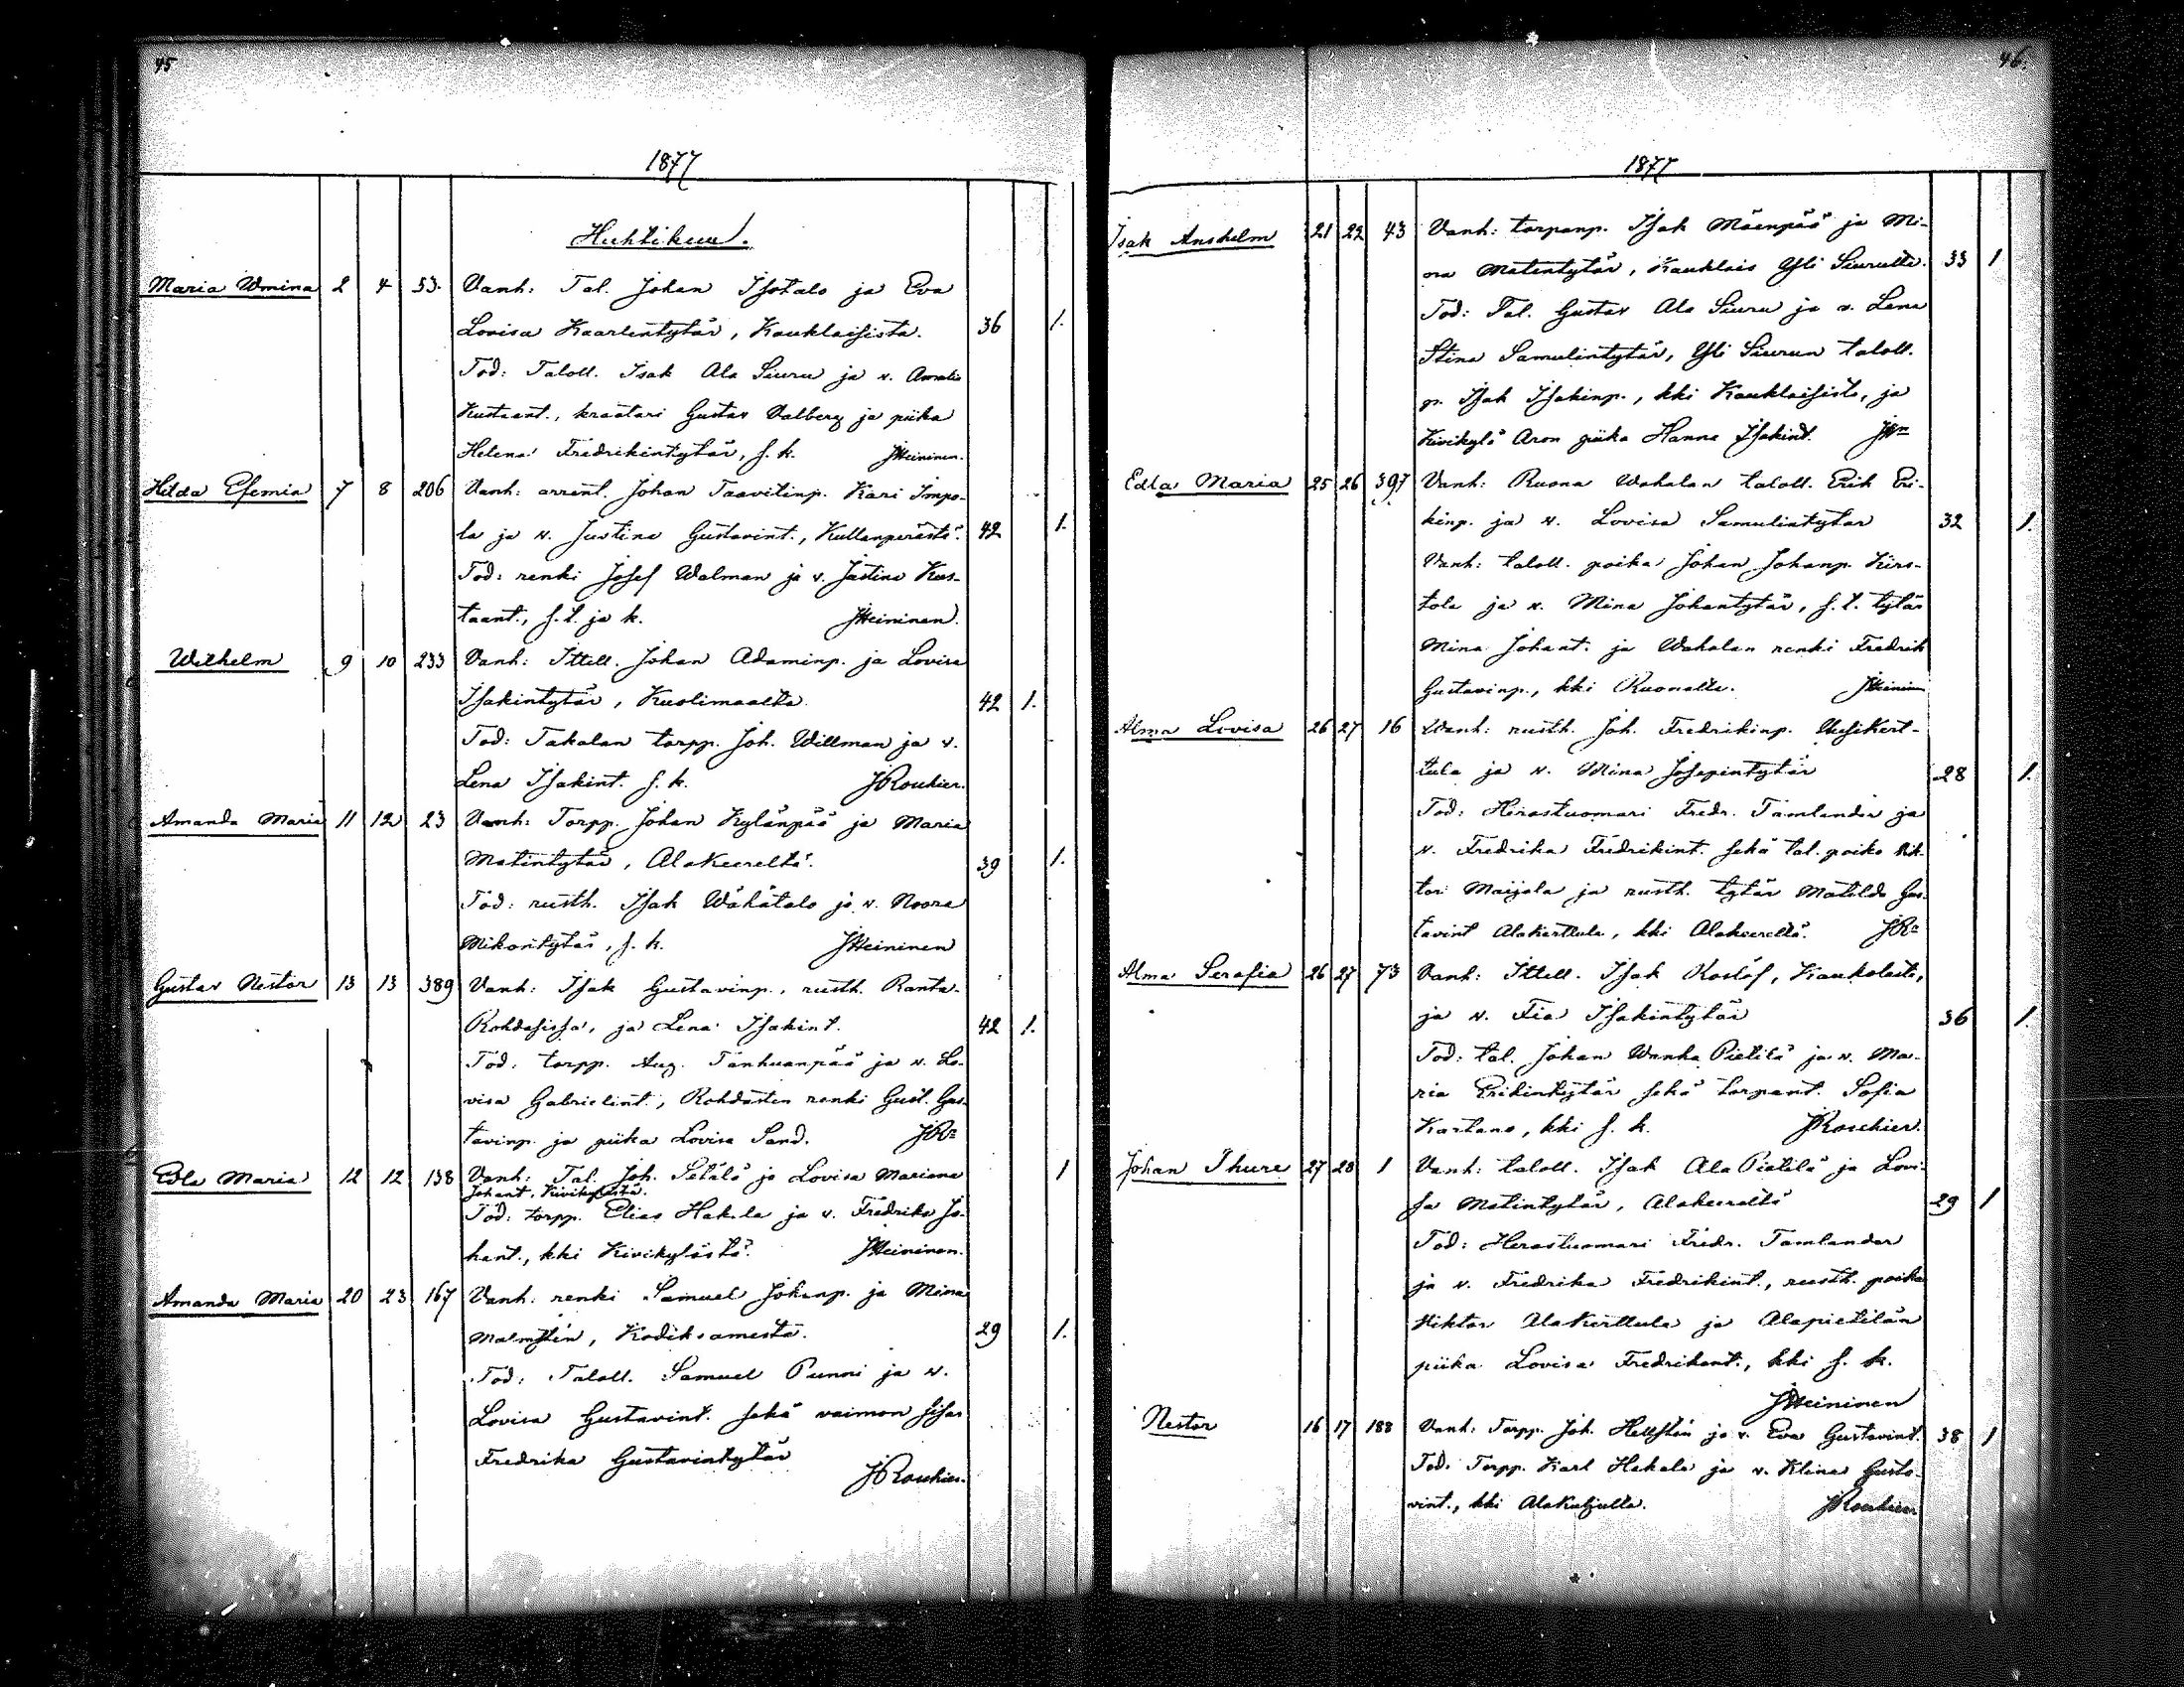 45
1877
Huhtikuu.
Maria Wmina 2 4 53. Vanh: Tal. Johan Isotalo ja Eva
Lovisa Kaarlentytär, Kauklaisista. 36 1.
Tod: Taloll. Isak Ala Siuru ja v. Amalia
Kustaant., kraatari Gustav Valberg ja piika
Helena Fredrikintytär, s. k. JHeininen.
Hilda Efemia 7 8 206 Vanh: arrent. Johan Taavitinp. Kari Impo-
la ja v. Justina Gustavint., Kullanperästä. 42 1.
Tod: renki Josef Walman ja v. Justina Kus-
taant., s. t. ja k. JHeininen.
Wilhelm 9 10 233 Vanh: Ittell. Johan Adaminp. ja Lovisa
Isakintytär, Kuolimaalta. 42 1.
Tod: Takalan torpp. Joh. Willman ja v.
Lena Isakint. s. k. JRoukier.
Amanda Maria 11 12 23 Vanh: Torpp. Johan Kylänpää ja Maria
Matintytär, Alakeereltä. 39 1.
Tod: rusth. Isak Wähätalo ja v. Noora
Mikontytär, s. k. JHeininen
Gustav Nestor 13 13 389 Vanh: Isak Gustavinp., rusth. Ranta-
Rohdaisissa, ja Lena Isakint. 42 1.
Tod. torpp. Aug. Tanhuanpää ja v. Lo-
visa Gabrielint., Rohdasten renki Gust. Gus-
tavinp. ja piika Lovisa Sand. JRr
Edla Maria 12 12 138 Vanh: Tal. Joh. Setälä ja Lovisa Mariana 1
Johant, Kivikylästä.
Tod: torpp. Elias Hakala ja v. Fredrika Jo-
hant., kki Kivikylästä. JHeininen.
Amanda Maria 20 23 167 Vanh. renki Samuel Johanp. ja Mina
Malmstén, Kodiksamesta. 29 1.
Tod: Taloll. Samuel Punni ja v.
Lovisa Gustavint. sekä vaimon sisar
Fredrika Gustavintytär
JRoukier.
46.
1877
Isak Anshelm 21 22 43 Vanh: torpanp. Isak Mäenpää ja Mi-
na Matintytär, Kauklais Yli Siurulta. 33 1
Tod: Tal. Gustav Ala Siuru ja v. Lena
Stina Samulintytär, Yli Siurun taloll.
p. Isak Isakinp., kki Kauklaisista, ja
Kivikylä Aron piika Hanna Isakint. JHn
Edla Maria 25 26 397 Vanh: Ruona Wahalan taloll. Erik Eri-
kinp. ja v. Lovisa Samulintytär 32 1.
Vanh: taloll. poika Johan Johanp. Kirs-
tola ja v. Mina Johantytär, s. t. tytär
Mina Johant. ja Wahalan renki Fredrik
Gustavinp., kki Ruonalta. JHeininen
Alma Lovisa 26 27 16 Vanh: rusth. Joh. Fredrikinp. Uusikert-
tula ja v. Mina Josepintytär 28 1.
Tod: Herastuomari Fredr. Tamlander ja
v. Fredrika Fredrikint. sekä tal. poika Vik-
tor Maijala ja rusth. tytär Matilda Gus-
tavint Alakerttula, kki Alakeereltä. JRr
Alma Serafia 26 27 73 Vanh: Ittell. Isak Roslöf, Kaukolasta,
ja v. Fia Isakintytär 36 1.
Tod: tal. Johan Wanha Pietilä ja v. Ma-
ria Erikintytär sekä torpant. Sofia
Kartano, kki s. k. JRoukier.
Johan Thure 27 28 1 Vanh: taloll. Isak Ala Pietilä ja Lovi-
sa Matintytär, Alakeereltä 29 1
Tod: Herastuomari Fredr. Tamlander
ja v. Fredrika Fredrikint., rusth. poika
Viktor Alakerttula ja Alapietilän
piika Lovisa Fredrikant., kki s. k.
JHeininen
Nestor 16 17 188 Vanh: Torpp. Joh. Hellstén ja v. Eva Gustavint. 38 1
Tod. Torpp. Karl Hakala ja v. Klina Gusta-
vint., kki Alakuljulta. JRoukier